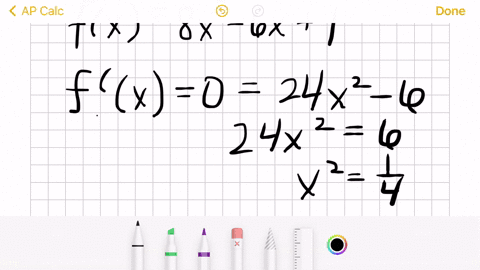 AP Calc Done
f(x) 8x - 6x + 1
f'(x) = 0 = 24x² - 6
24x² = 6
x² = 1/4